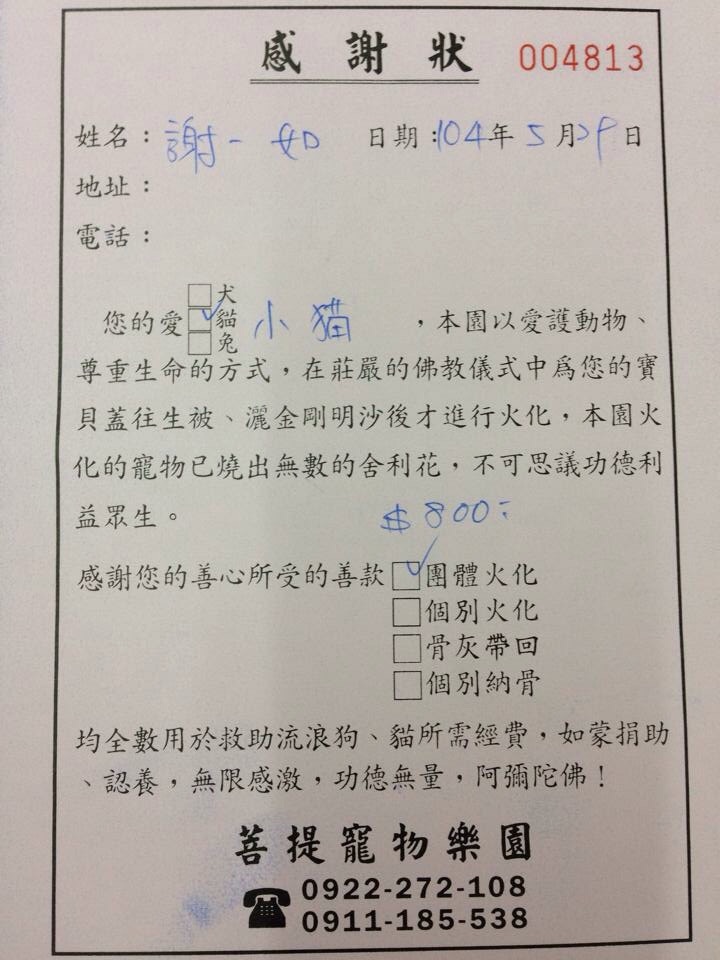 感謝狀 004813
姓名：謝一如 日期：104年5月29日
地址：
電話：
□犬
您的愛☑貓 小貓 ，本園以愛護動物、
□兔
尊重生命的方式，在莊嚴的佛教儀式中爲您的寶
貝蓋往生被、灑金剛明沙後才進行火化，本園火
化的寵物已燒出無數的舍利花，不可思議功德利
益眾生。
$800：
感謝您的善心所受的善款☑團體火化
□個別火化
□骨灰帶回
□個別納骨
均全數用於救助流浪狗、貓所需經費，如蒙捐助
、認養，無限感激，功德無量，阿彌陀佛！
菩提寵物樂園
☎0922-272-108
0911-185-538